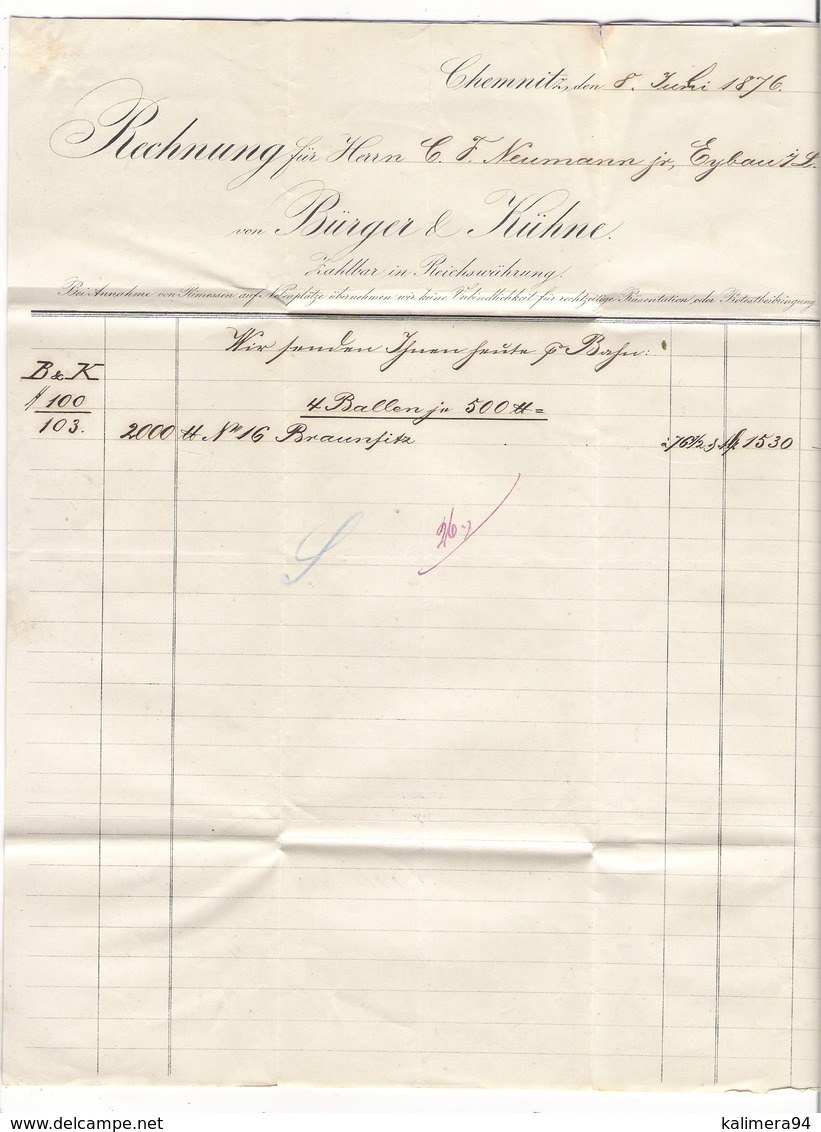 Chemnitz, den 8. Juli 1876.
Rechnung für Herrn C. F. Neumann jr, Eybau i/L.
von Bürger & Kühne.
Zahlbar in Reichswährung.
Bei Annahme von Rimessen auf Nebenplätze übernehmen wir keine Verbindlichkeit für rechtzeitige Präsentation oder Protestbeibringung.
Wir senden Ihnen heute p Bahn:
B & K
# 100
103.
4 Ballen je 500 ℔ =
2000 ℔ No 16 à 76 1/2 ₰ Mk 1530
26
kalimera94